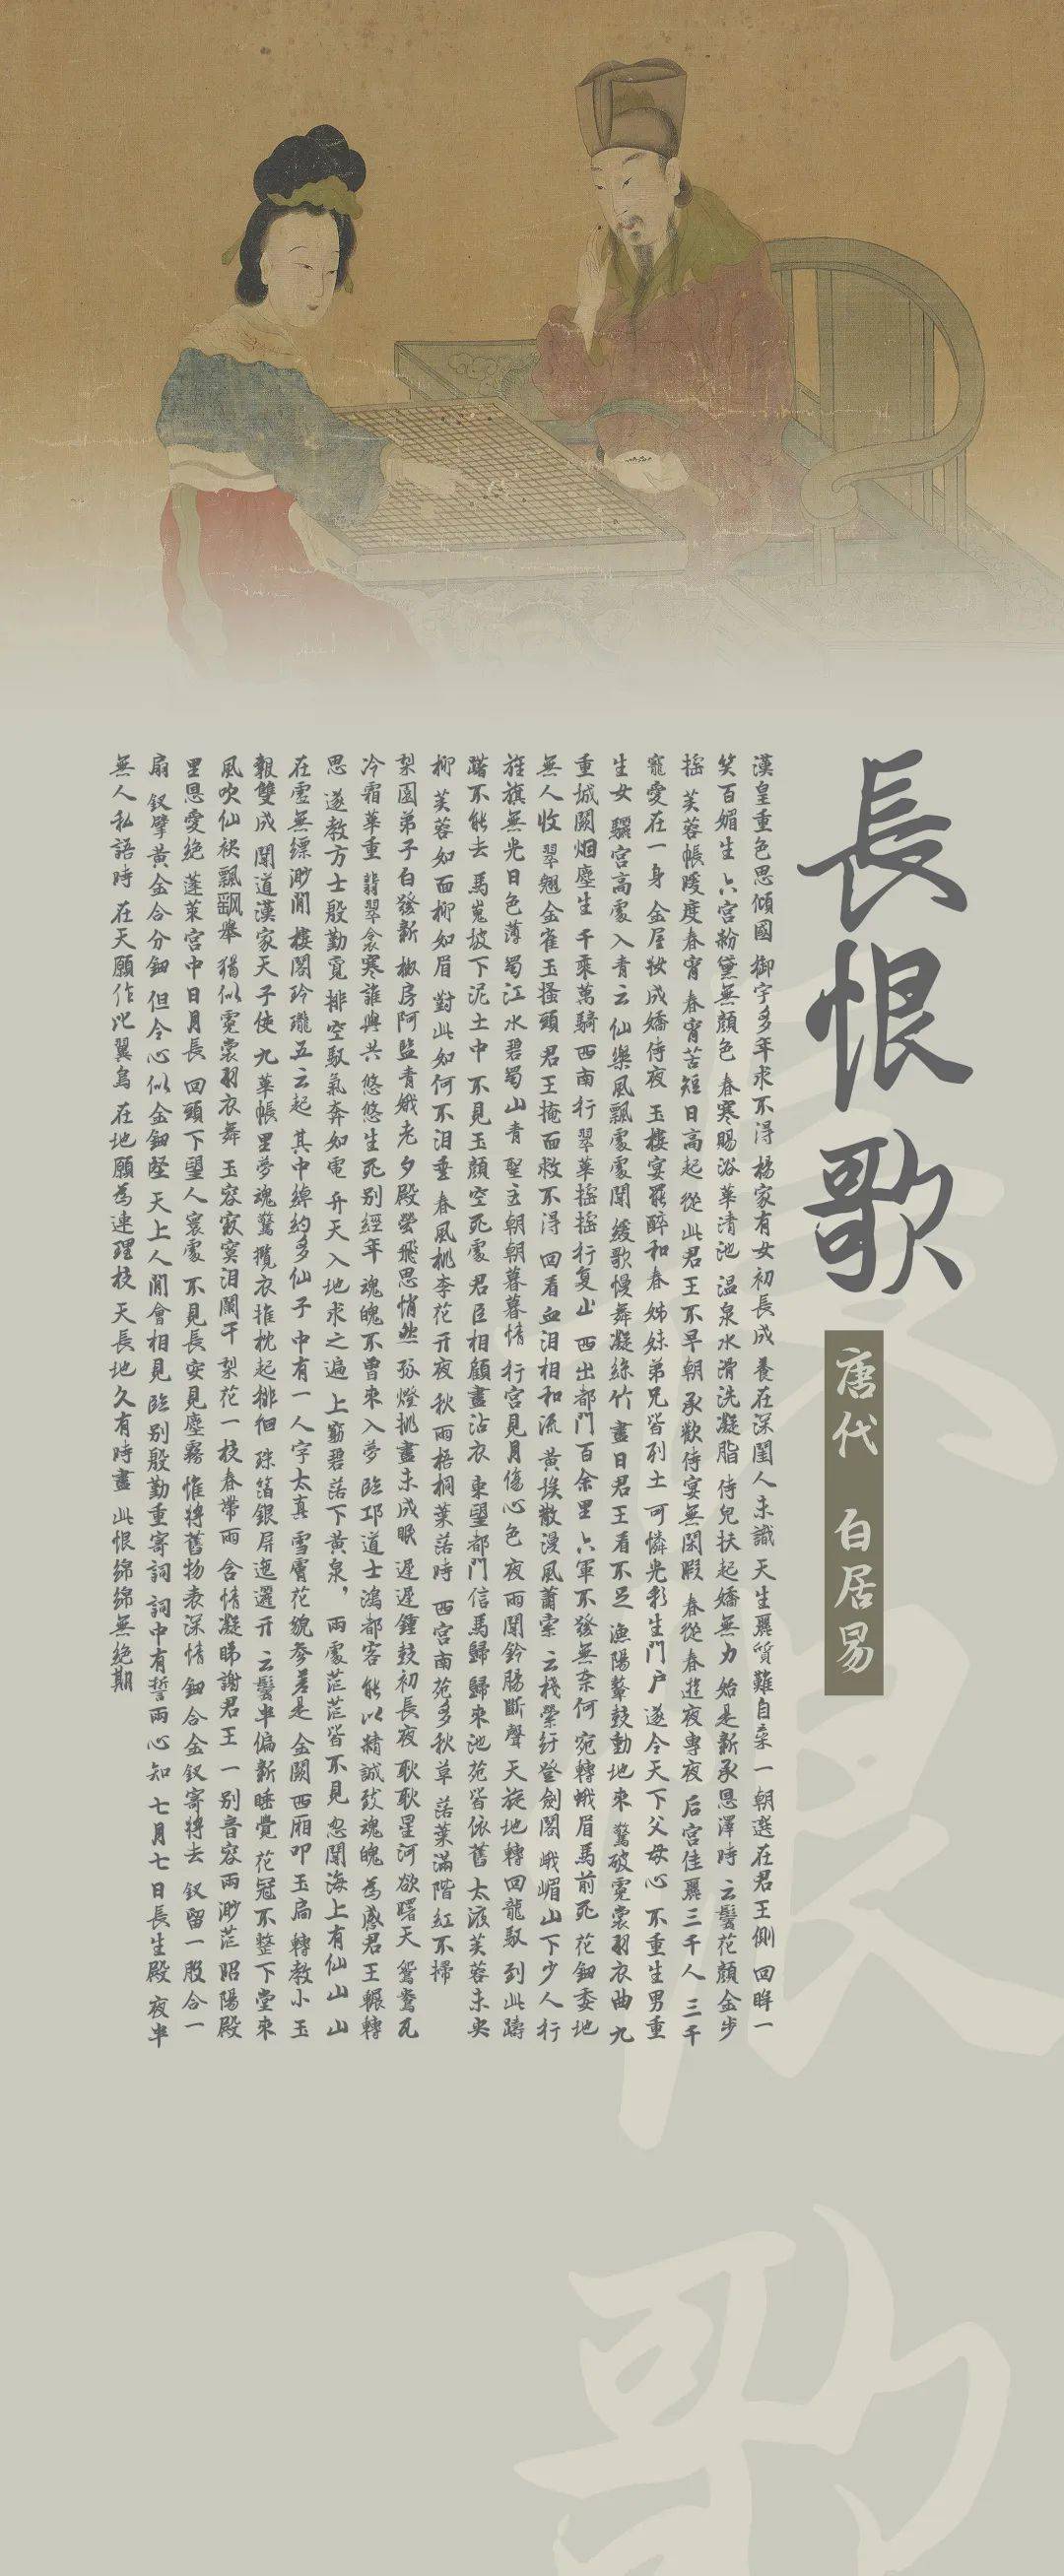 長恨歌
唐代 白居易
漢皇重色思傾國 御宇多年求不得 楊家有女初長成 養在深閨人未識 天生麗質難自棄 一朝選在君王側 回眸一
笑百媚生 六宮粉黛無顏色 春寒賜浴華清池 温泉水滑洗凝脂 侍兒扶起嬌無力 始是新承恩澤時 云鬢花顏金步
搖 芙蓉帳暖度春宵 春宵苦短日高起 從此君王不早朝 承歡侍宴無閑暇 春從春遊夜專夜 后宮佳麗三千人 三千
寵愛在一身 金屋妝成嬌侍夜 玉樓宴罷醉和春 姊妹弟兄皆列土 可憐光彩生門户 遂令天下父母心 不重生男重
生女 驪宮高處入青云 仙樂風飄處處聞 緩歌慢舞凝絲竹 盡日君王看不足 漁陽鼙鼓動地來 驚破霓裳羽衣曲 九
重城闕烟塵生 千乘萬騎西南行 翠華搖搖行复止 西出都門百余里 六軍不發無奈何 宛轉蛾眉馬前死 花鈿委地
無人收 翠翹金雀玉搔頭 君王掩面救不得 回看血泪相和流 黃埃散漫風蕭索 云棧縈紆登劍閣 峨嵋山下少人行
旌旗無光日色薄 蜀江水碧蜀山青 聖主朝朝暮暮情 行宮見月傷心色 夜雨聞鈴腸斷聲 天旋地轉回龍馭 到此躊
躇不能去 馬嵬坡下泥土中 不見玉顏空死處 君臣相顧盡沾衣 東望都門信馬歸 歸來池苑皆依舊 太液芙蓉未央
柳 芙蓉如面柳如眉 對此如何不泪垂 春風桃李花开夜 秋雨梧桐葉落時 西宮南苑多秋草 落葉滿階紅不掃
梨園弟子白發新 椒房阿監青娥老 夕殿螢飛思悄然 孤燈挑盡未成眠 遲遲鍾鼓初長夜 耿耿星河欲曙天 鴛鴦瓦
冷霜華重 翡翠衾寒誰與共 悠悠生死别經年 魂魄不曾來入夢 臨邛道士鴻都客 能以精誠致魂魄 為感君王輾轉
思 遂教方士殷勤覓 排空馭氣奔如電 升天入地求之遍 上窮碧落下黃泉，兩處茫茫皆不見 忽聞海上有仙山 山
在虛無縹渺間 樓閣玲瓏五云起 其中綽約多仙子 中有一人字太真 雪膚花貌參差是 金闕西厢叩玉扃 轉教小玉
報雙成 聞道漢家天子使 九華帳里夢魂驚 攬衣推枕起排徊 珠箔銀屏迤邐开 云鬢半偏新睡覺 花冠不整下堂來
風吹仙袂飄飖舉 猶似霓裳羽衣舞 玉容寂寞泪闌干 梨花一枝春帶雨 含情凝睇謝君王 一别音容兩渺茫 昭陽殿
里恩愛絶 蓬萊宮中日月長 回頭下望人寰處 不見長安見塵霧 惟將舊物表深情 鈿合金釵寄將去 釵留一股合一
扇 釵擘黃金合分鈿 但令心似金鈿堅 天上人間會相見 臨别殷勤重寄詞 詞中有誓兩心知 七月七日長生殿 夜半
無人私語時 在天願作比翼鳥 在地願為連理枝 天長地久有時盡 此恨綿綿無絶期